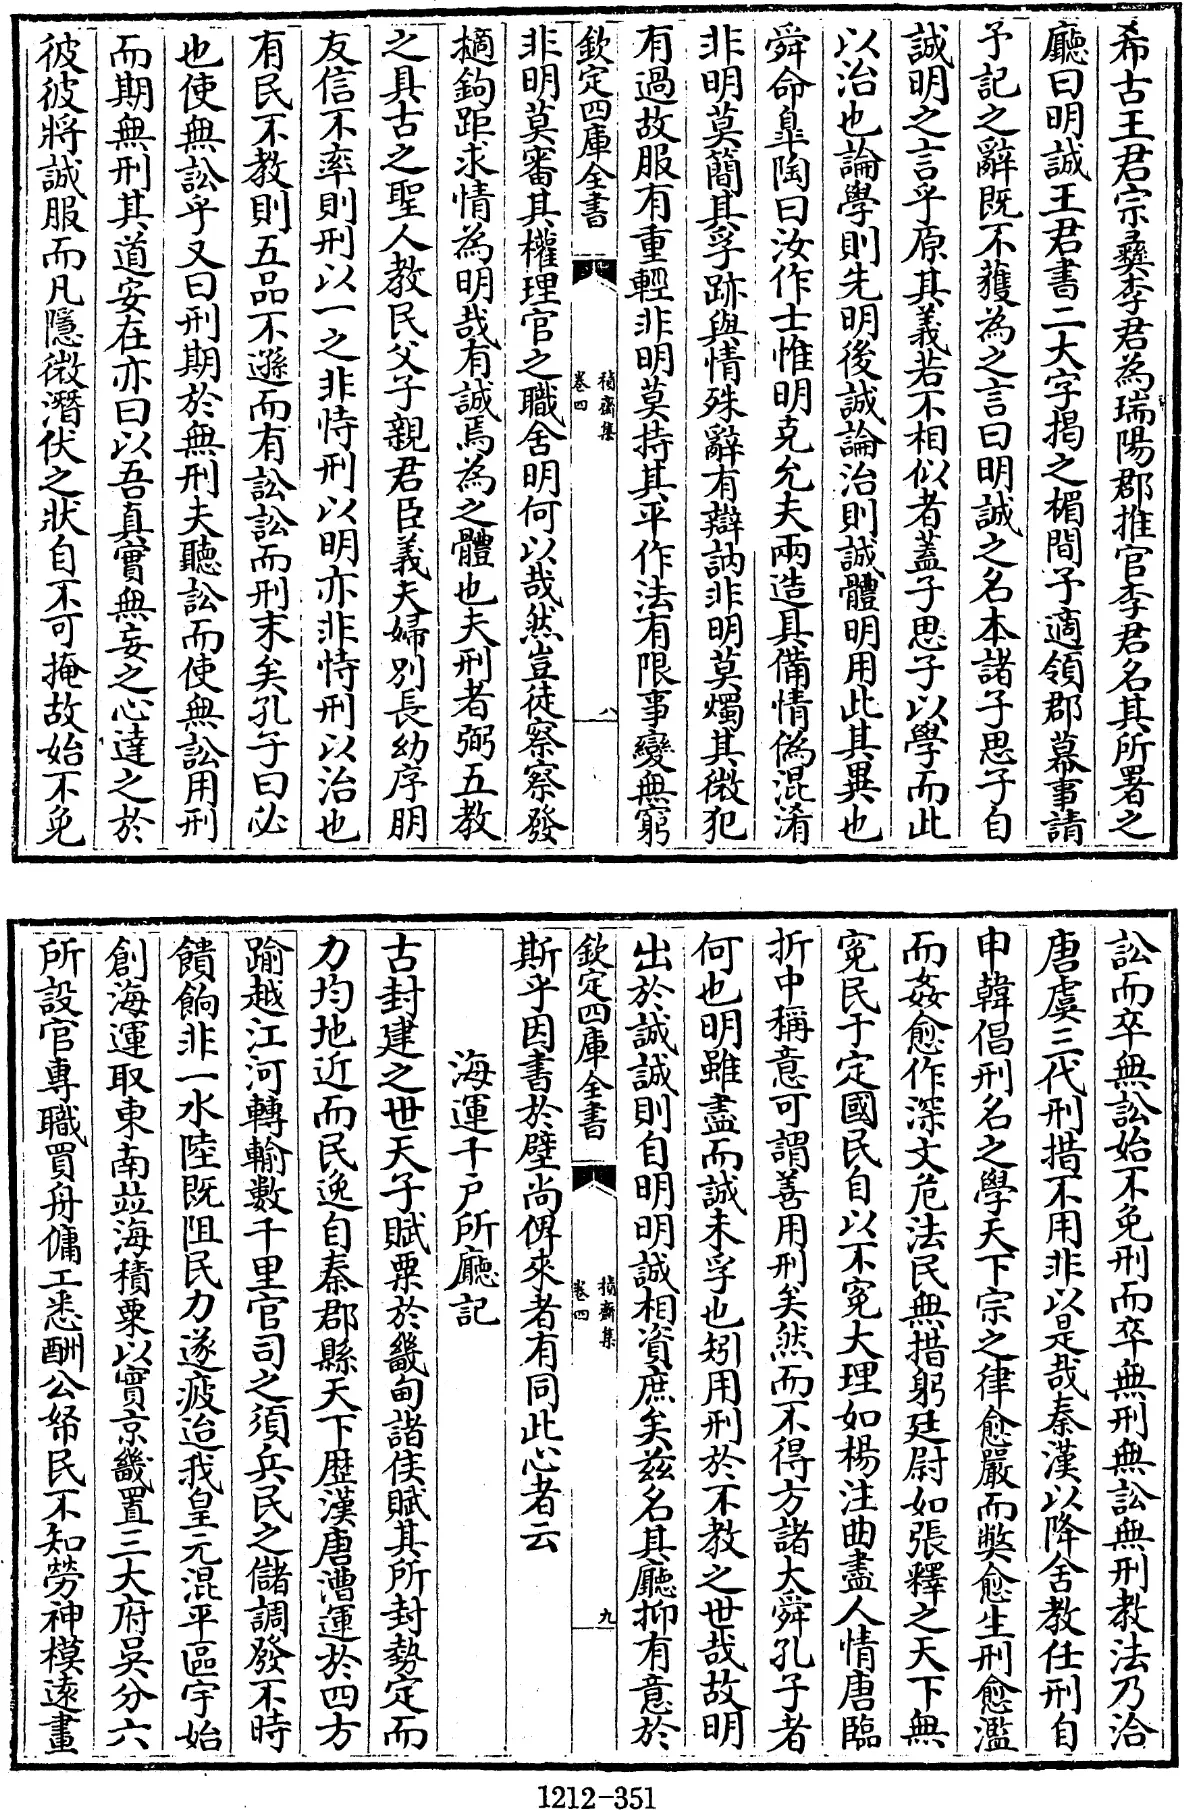 希古王君宗彛李君為瑞陽郡推官李君名其所署之
廳曰明誠王君書二大字揭之楣間予適領郡幕事請
予記之辭既不獲為之言曰明誠之名本諸子思子自
誠明之言乎原其義若不相似者蓋子思子以學而此
以治也論學則先明後誠論治則誠體明用此其異也
舜命臯陶曰汝作士惟明克允夫兩造具備情偽混淆
非明莫簡其孚跡與情殊辭有辯訥非明莫燭其微犯
有過故服有重輕非明莫持其平作法有限事變無窮
欽定四庫全書
積齋集
卷四
八
非明莫審其權理官之職舍明何以哉然豈徒察察發
擿鉤距求情為明哉有誠焉為之體也夫刑者弼五教
之具古之聖人教民父子親君臣義夫婦別長幼序朋
友信不率則刑以一之非恃刑以明亦非恃刑以治也
有民不教則五品不遜而有訟訟而刑末矣孔子曰必
也使無訟乎又曰刑期於無刑夫聽訟而使無訟用刑
而期無刑其道安在亦曰以吾真實無妄之心達之於
彼彼將誠服而凡隱微潛伏之狀自不可掩故始不免
訟而卒無訟始不免刑而卒無刑無訟無刑教法乃洽
唐虞三代刑措不用非以是哉秦漢以降舍教任刑自
申韓倡刑名之學天下宗之律愈嚴而獘愈生刑愈濫
而姦愈作深文危法民無措躬廷尉如張釋之天下無
寃民于定國民自以不寃大理如楊注曲盡人情唐臨
折中稱意可謂善用刑矣然而不得方諸大舜孔子者
何也明雖盡而誠未孚也矧用刑於不教之世哉故明
出於誠誠則自明明誠相資庶矣兹名其廳抑有意於
欽定四庫全書
積齋集
卷四
九
斯乎因書於壁尚俾來者有同此心者云
海運千戶所廳記
古封建之世天子賦粟於畿甸諸侯賦其所封勢定而
力均地近而民逸自秦郡縣天下歴漢唐漕運於四方
踰越江河轉輸數千里官司之須兵民之儲調發不時
饋餉非一水陸既阻民力遂疲迨我皇元混平區宇始
創海運取東南並海積粟以實京畿置三大府吳分六
所設官專職買舟傭工悉酬公帑民不知勞神模遠畫
1212-351